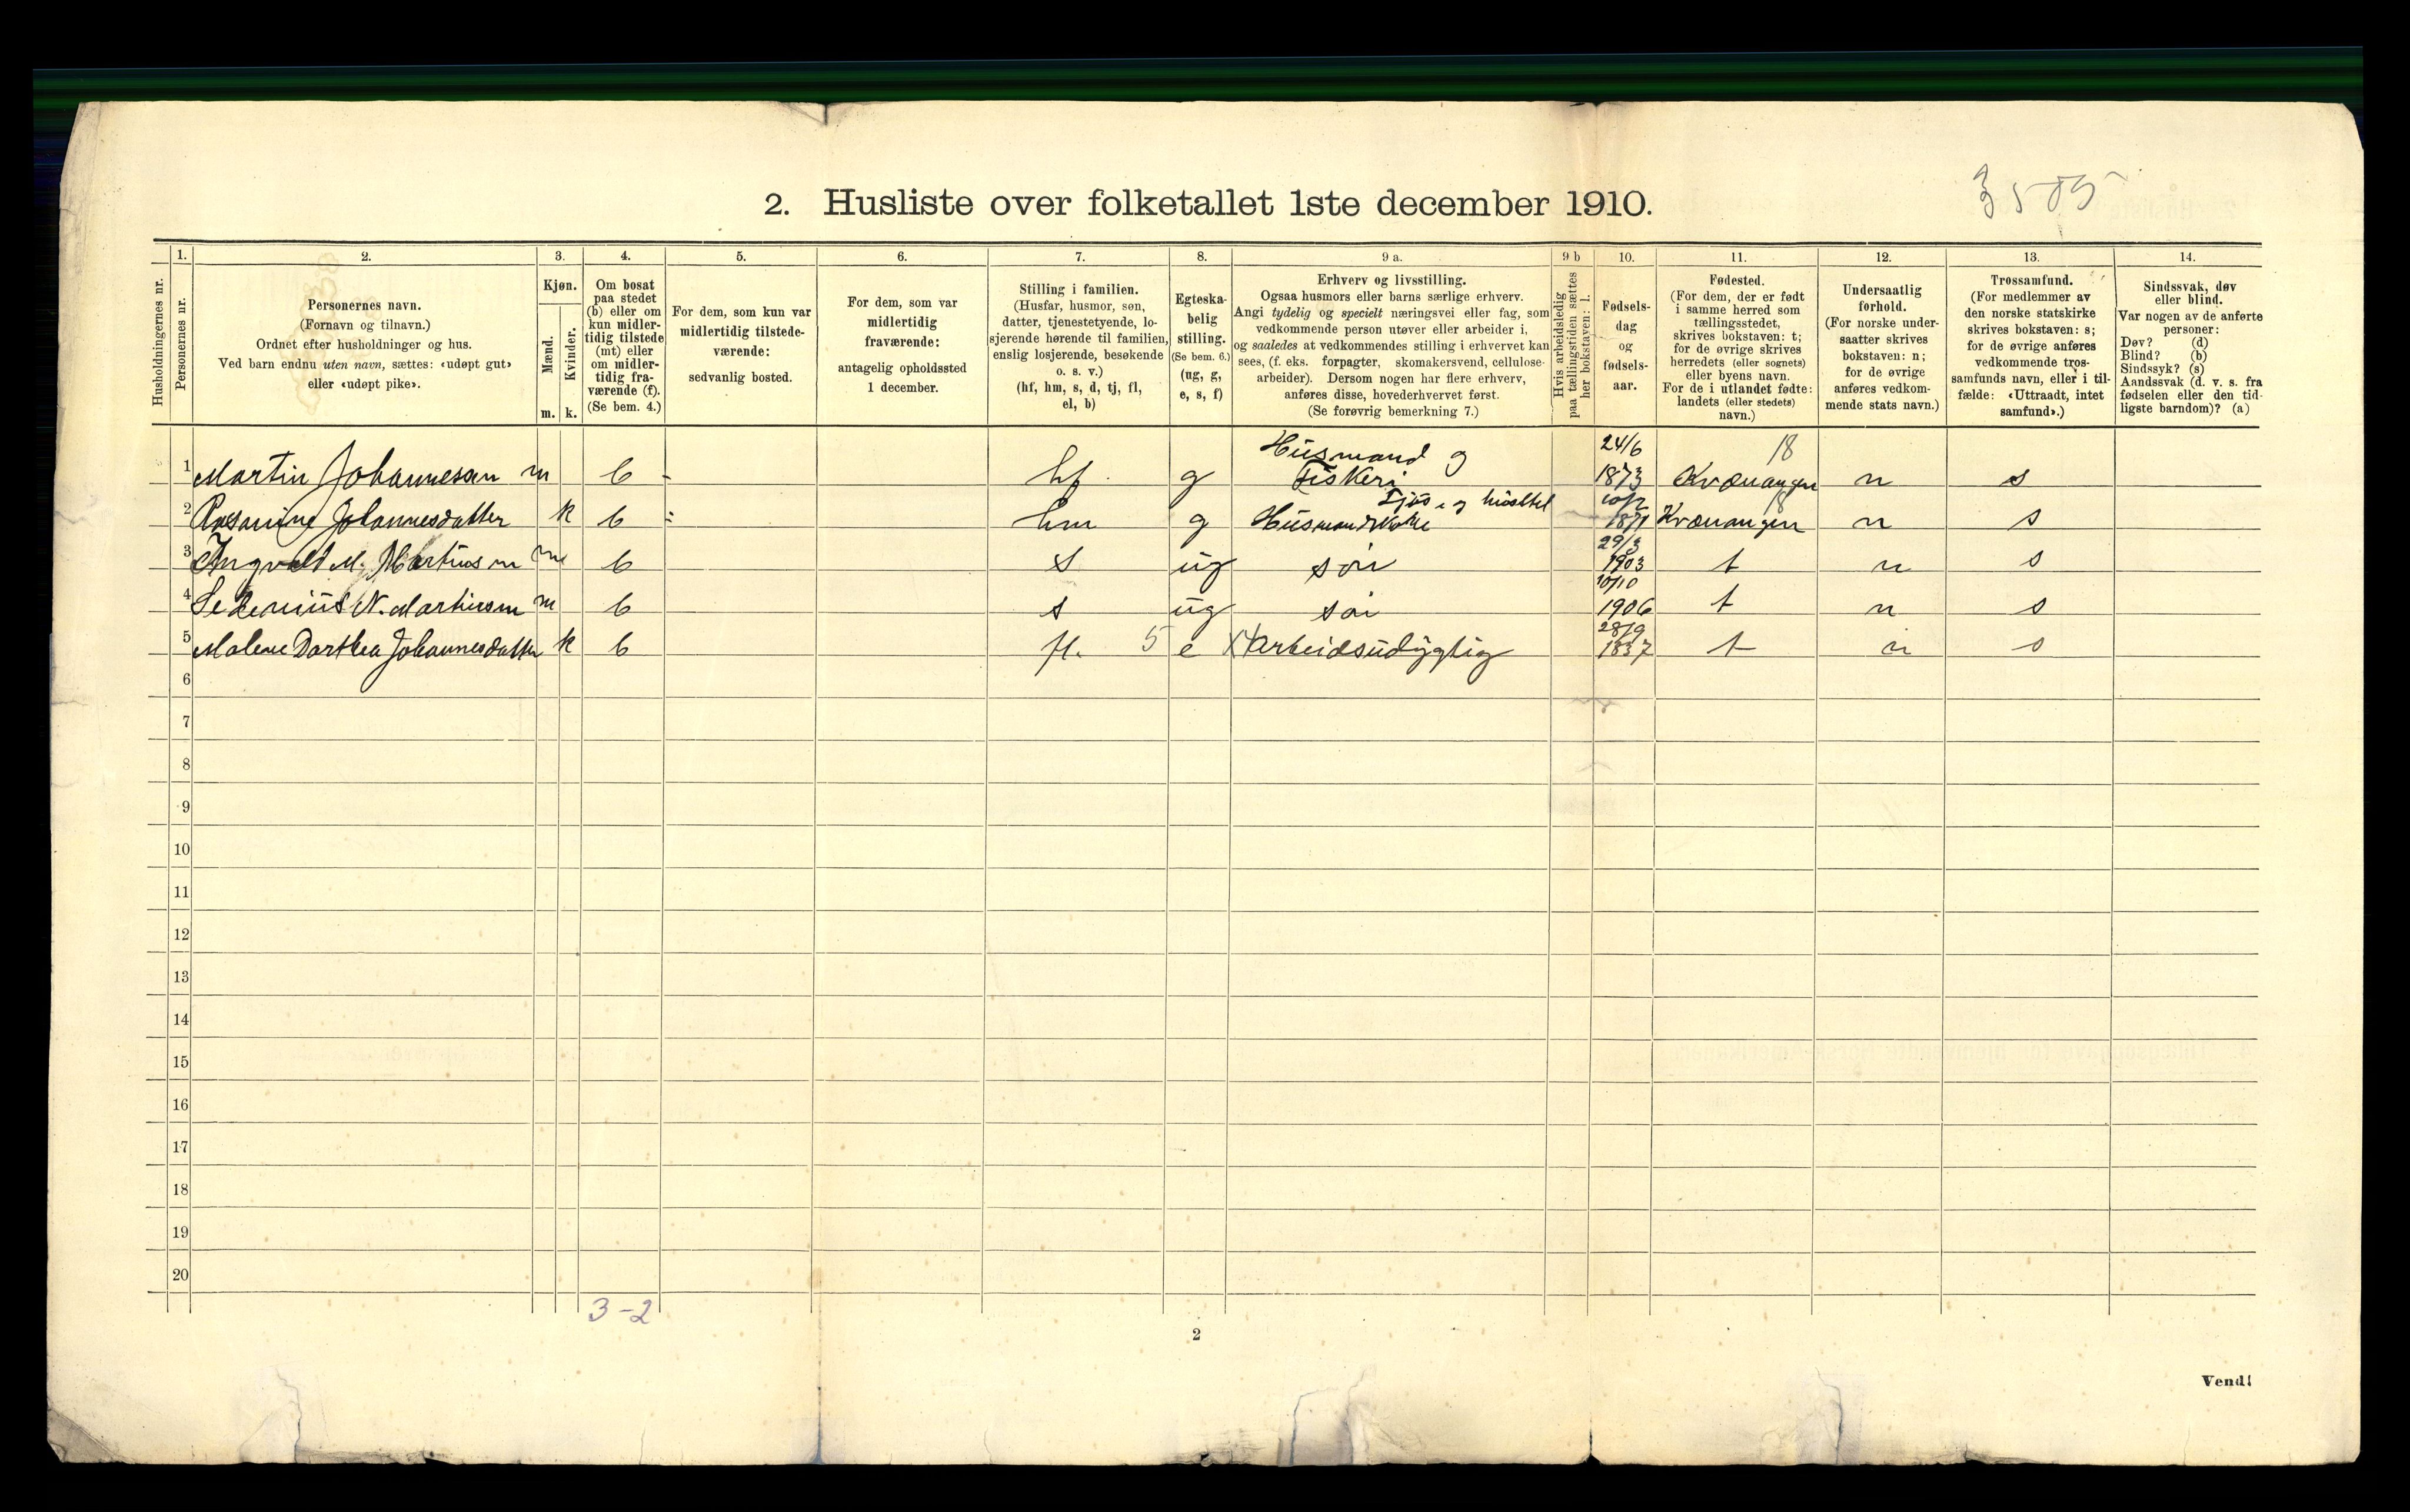 3505
2. Husliste over folketallet 1ste december 1910.
Husholdningernes nr.
1.
Personernes nr.
2.
Personernes navn.
(Fornavn og tilnavn.)
Ordnet efter husholdninger og hus.
Ved barn endnu uten navn, sættes: «udøpt gut»
eller «udøpt pike».
3.
Kjøn.
Mænd.
Kvinder.
m. k.
4.
Om bosat
paa stedet
(b) eller om
kun midler-
tidig tilstede
(mt) eller
om midler-
tidig fra-
værende (f).
(Se bem. 4.)
5.
For dem, som kun var
midlertidig tilstede-
værende:
sedvanlig bosted.
6.
For dem, som var
midlertidig
fraværende:
antagelig opholdssted
1 december.
7.
Stilling i familien.
(Husfar, husmor, søn,
datter, tjenestetyende, lo-
sjerende hørende til familien,
enslig losjerende, besøkende
o. s. v.)
(hf, hm, s, d, tj, fl,
el, b)
8.
Egteska-
belig
stilling.
(Se bem. 6.)
(ug, g,
e, s, f)
9 a.
Erhverv og livsstilling.
Ogsaa husmors eller barns særlige erhverv.
Angi tydelig og specielt næringsvei eller fag, som
vedkommende person utøver eller arbeider i,
og saaledes at vedkommendes stilling i erhvervet kan
sees, (f. eks. forpagter, skomakersvend, cellulose-
arbeider). Dersom nogen har flere erhverv,
anføres disse, hovederhvervet først.
(Se forøvrig bemerkning 7.)
9 b
Hvis arbeidsledig
paa tællingstiden sættes
her bokstaven: l.
10.
Fødsels-
dag
og
fødsels-
aar.
11.
Fødested.
(For dem, der er født
i samme herred som
tællingsstedet,
skrives bokstaven: t;
for de øvrige skrives
herredets (eller sognets)
eller byens navn.
For de i utlandet fødte:
landets (eller stedets)
navn.)
12.
Undersaatlig
forhold.
(For norske under-
saatter skrives
bokstaven: n;
for de øvrige
anføres vedkom-
mende stats navn.)
13.
Trossamfund.
(For medlemmer av
den norske statskirke
skrives bokstaven: s;
for de øvrige anføres
vedkommende tros-
samfunds navn, eller i til-
fælde: «Uttraadt, intet
samfund».)
14.
Sindssvak, døv
eller blind.
Var nogen av de anførte
personer:
Døv? (d)
Blind? (b)
Sindssyk? (s)
Aandssvak (d. v. s. fra
fødselen eller den tid-
ligste barndom)? (a)
1 Martin Johannessen m b - hf. g Husmand og Fiskeri 24/6 1873 18 Kvænangen n s
2 Johannesdatter k b hm g Husmandskone 1871 18 Kvænangen n s
3 Ingvald M. m b s ug søn 29/3 1903 t n s
4 N. Martinsen m b s ug søn 10/10 1906 t n s
5 Malene Dorthea Johannesdatter k b fl. 5 e X Arbeidsudygtig 28/9 1837 t n s
6
7
8
9
10
11
12
13
14
15
16
17
18
19
20
3-2
2
Vend!